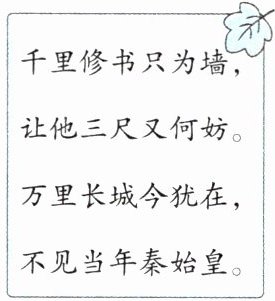 千里修书只为墙，
让他三尺又何妨。
万里长城今犹在，
不见当年秦始皇。